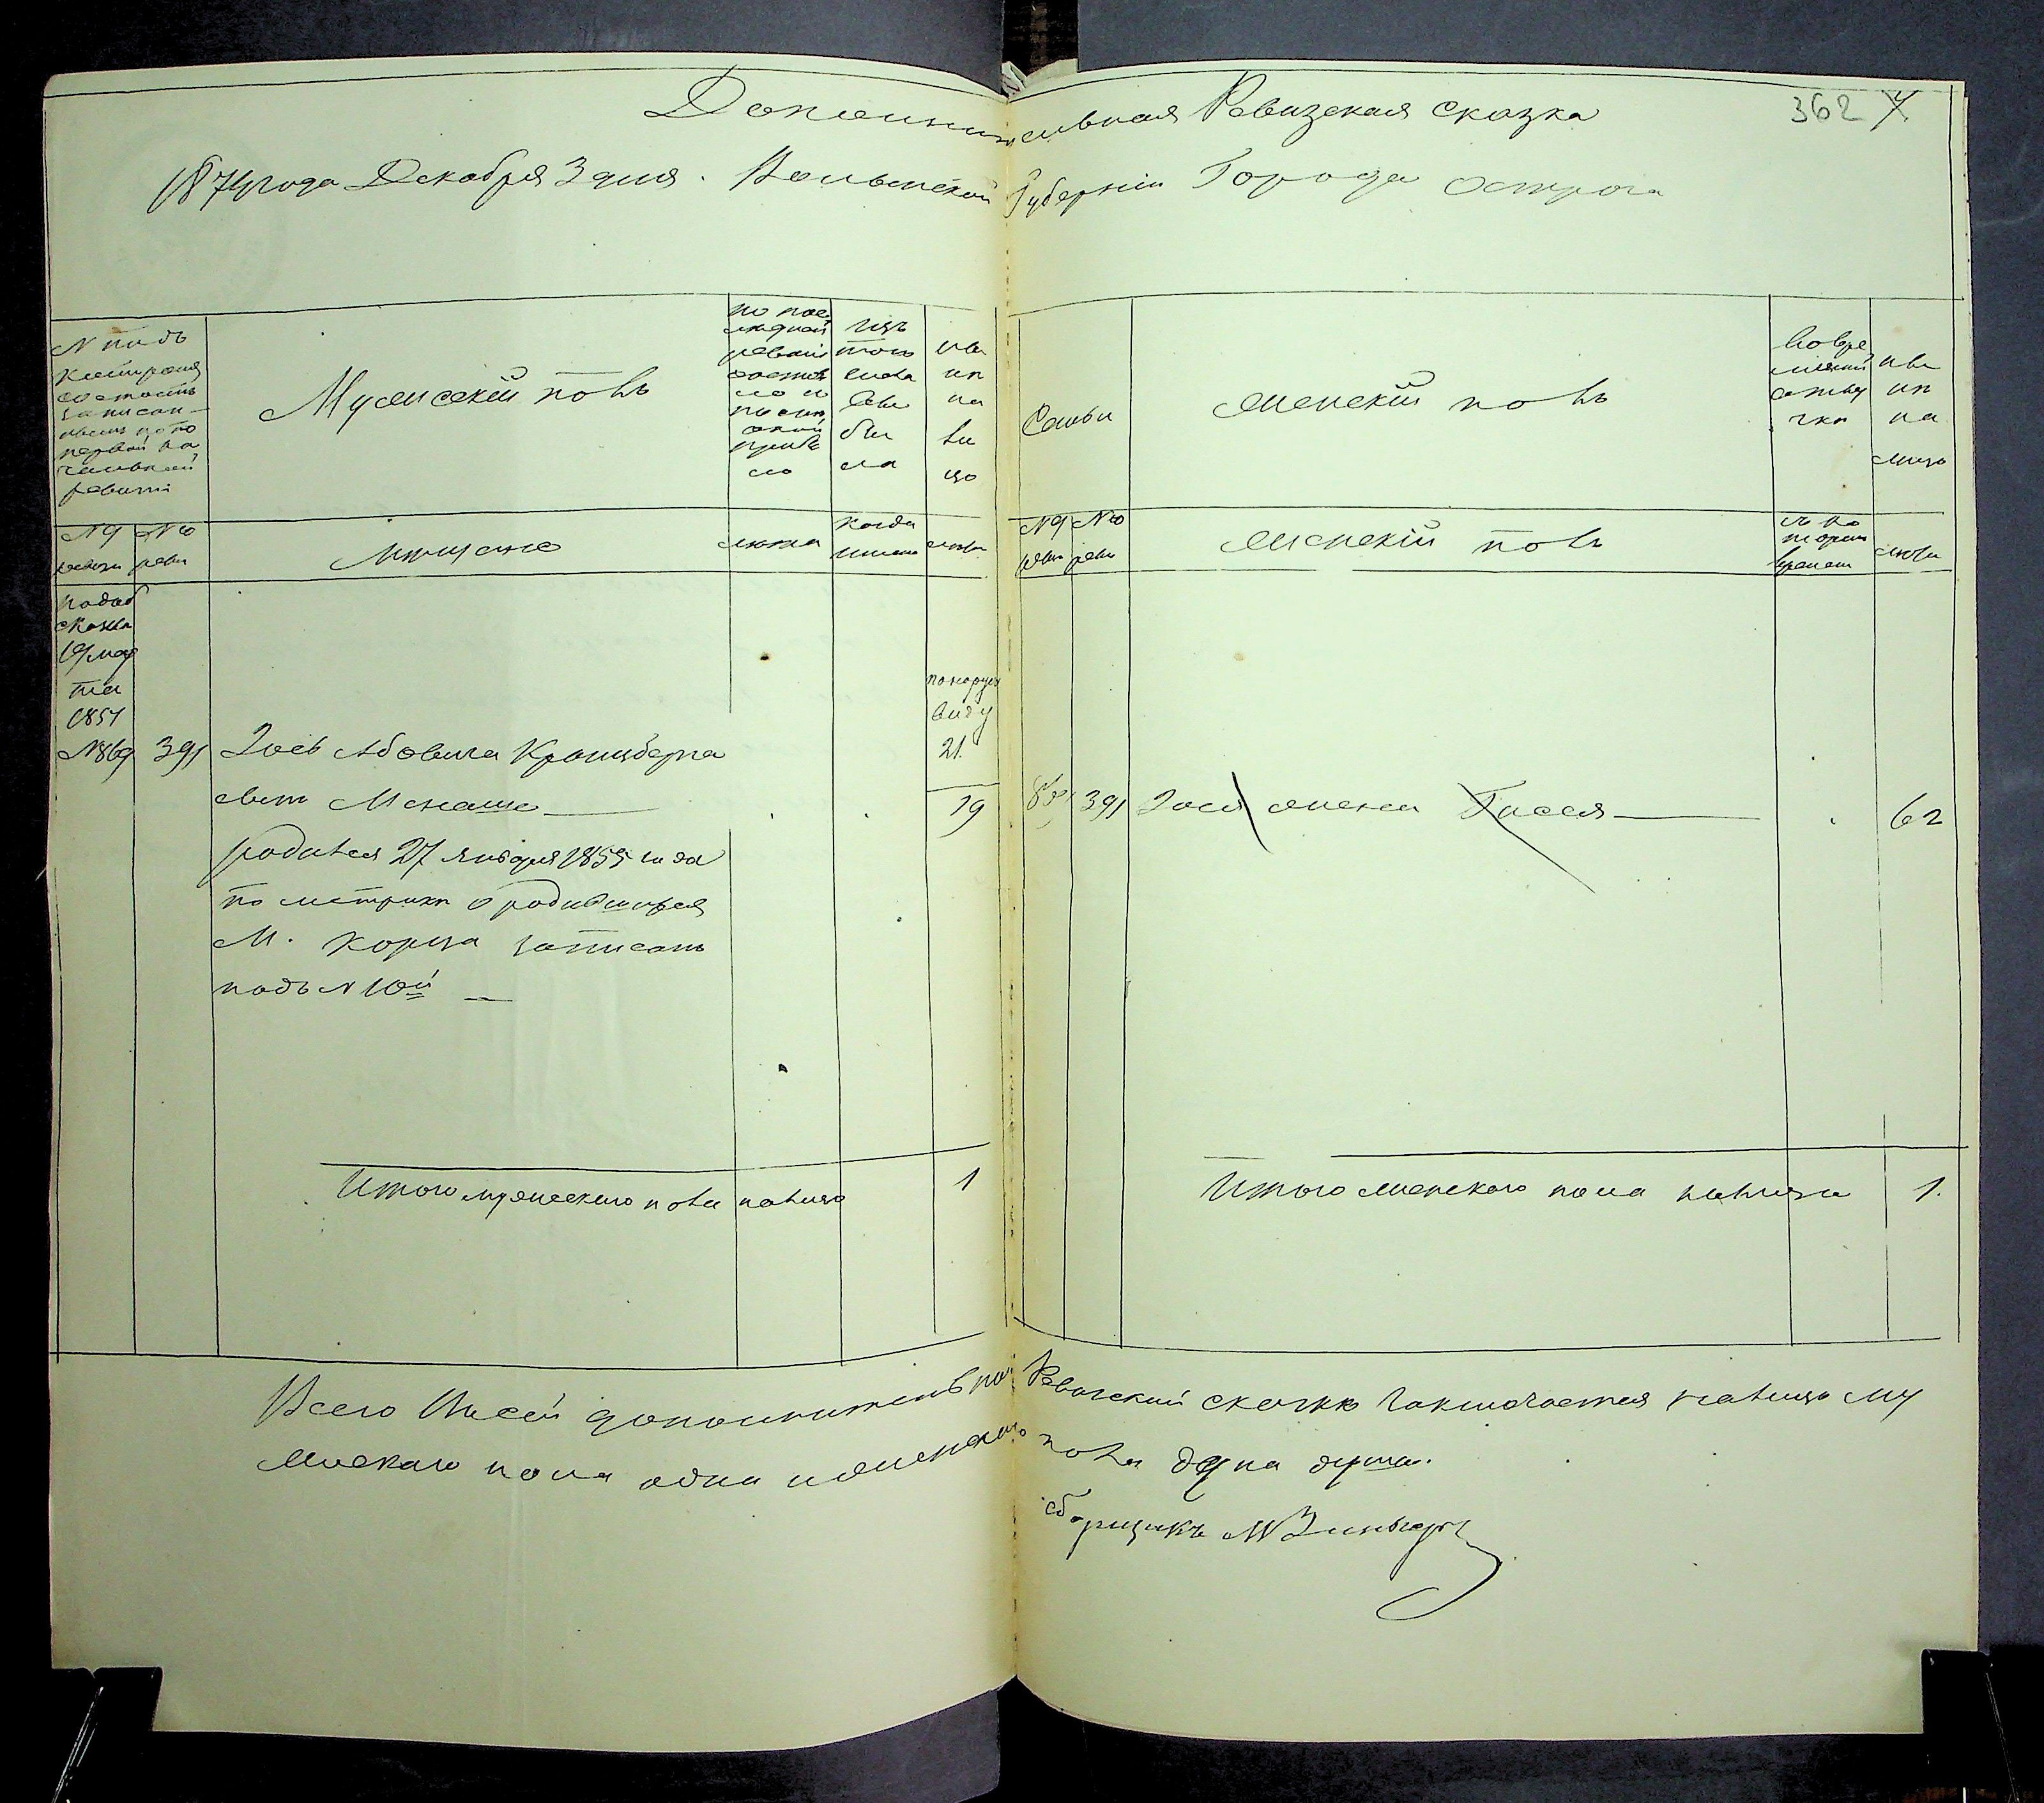 Дополнительная Ревизская сказка
362
1874 года Декабря 3 дня. Волынской Губернии Города Острога
N подъ
которымъ
состоитъ
записан-
нымъ по по
ревизіи
Мужескій полъ
по пос
лѣдней
ревизіи
состоя
ло и
послѣ
оной
прибы
ло
изъ
того
числа
вы
бы
ло
ны
нѣ
на
ли
цо
Семьи
Женскій полъ
Вовре
менной
отлу
чкѣ
ны
нѣ
на
лицо
N 9
ревизи
N 10
реви
Мѣщане
лѣта
когда
именно
лѣта
N 9
реви
N 10
реви
Женскій полъ
съ ко
торого
времени
лѣта
подъ
сказка
19 мар
та
1851
N 869
391
Іось Абовича Кронцберга
сынъ Менаше
родился 27 января 1855 года
по метрикѣ о родившихся
М. Корца записанъ
подъ N 10й
по наруж
виду
21.
19
391
Іося жена Гисся
62
Итого мужескаго пола налицо
1
Итого женскаго пола налицо
1.
Всего Въ сей дополнительной Ревизской сказкѣ Заключается налицо му
жескаго пола одна и женскаго пола одна душа.
сборщикъ М Зиньгеръ